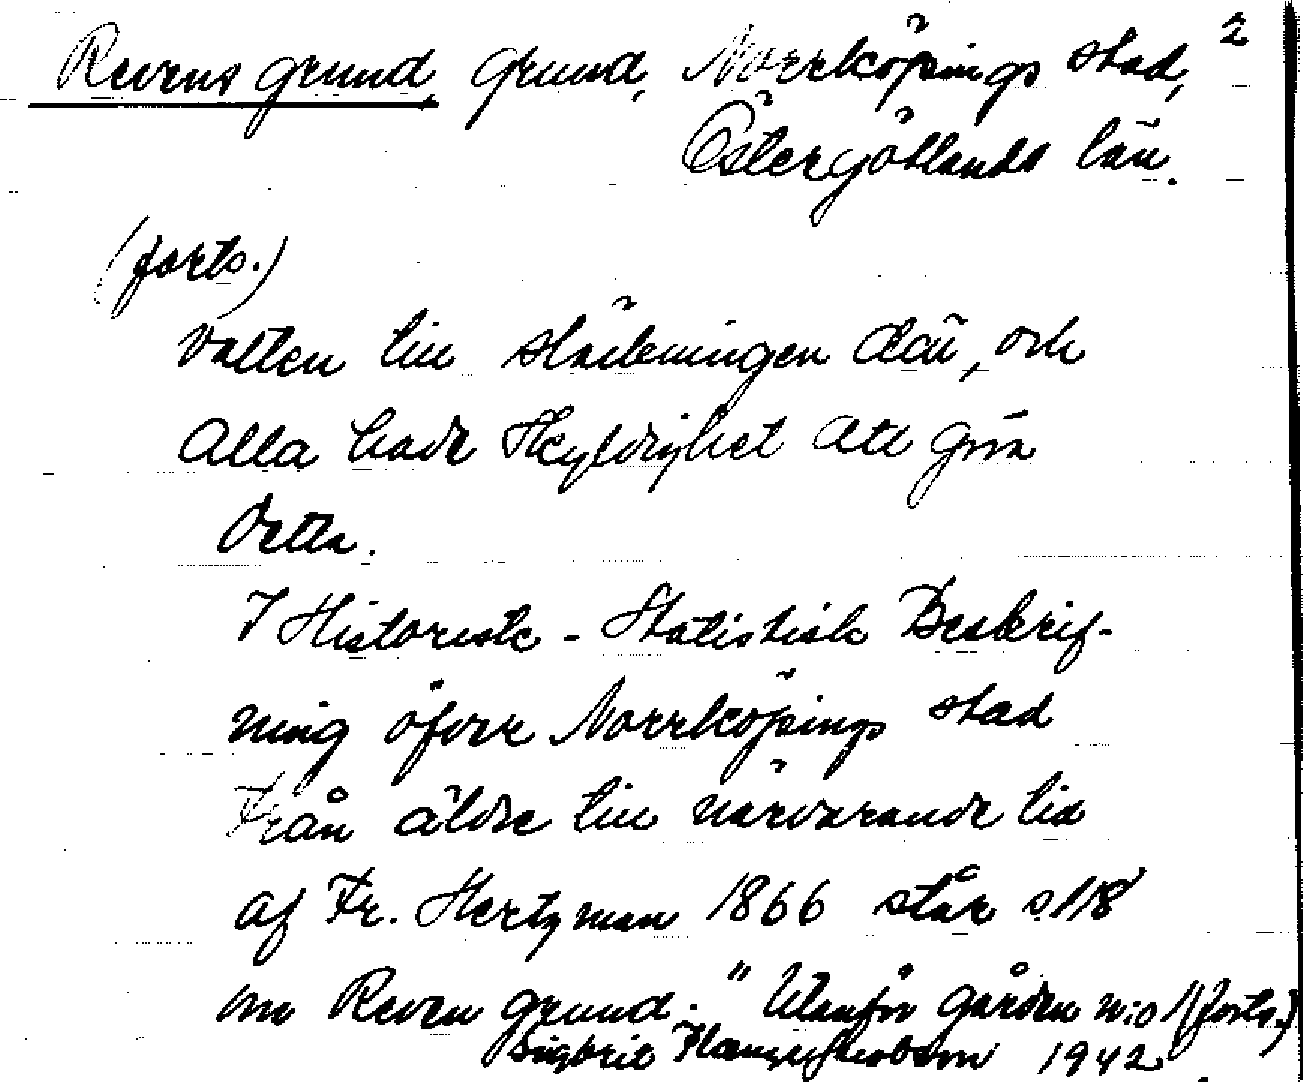 Revens grund, grund, Norrköpings stad, 2
Östergötlands län.
(forts.)
vatten till släckningen där, och
alla hade skyldighet att göra
detta.
I Historisk-Statistisk Beskrif-
ning öfver Norrköpings stad
från äldre till närvarande tid
af Fr. Hertzman 1866 står s. 118
om Reven grund. "Utanför gården n:o 1 (forts.)
Sigbrit 1942